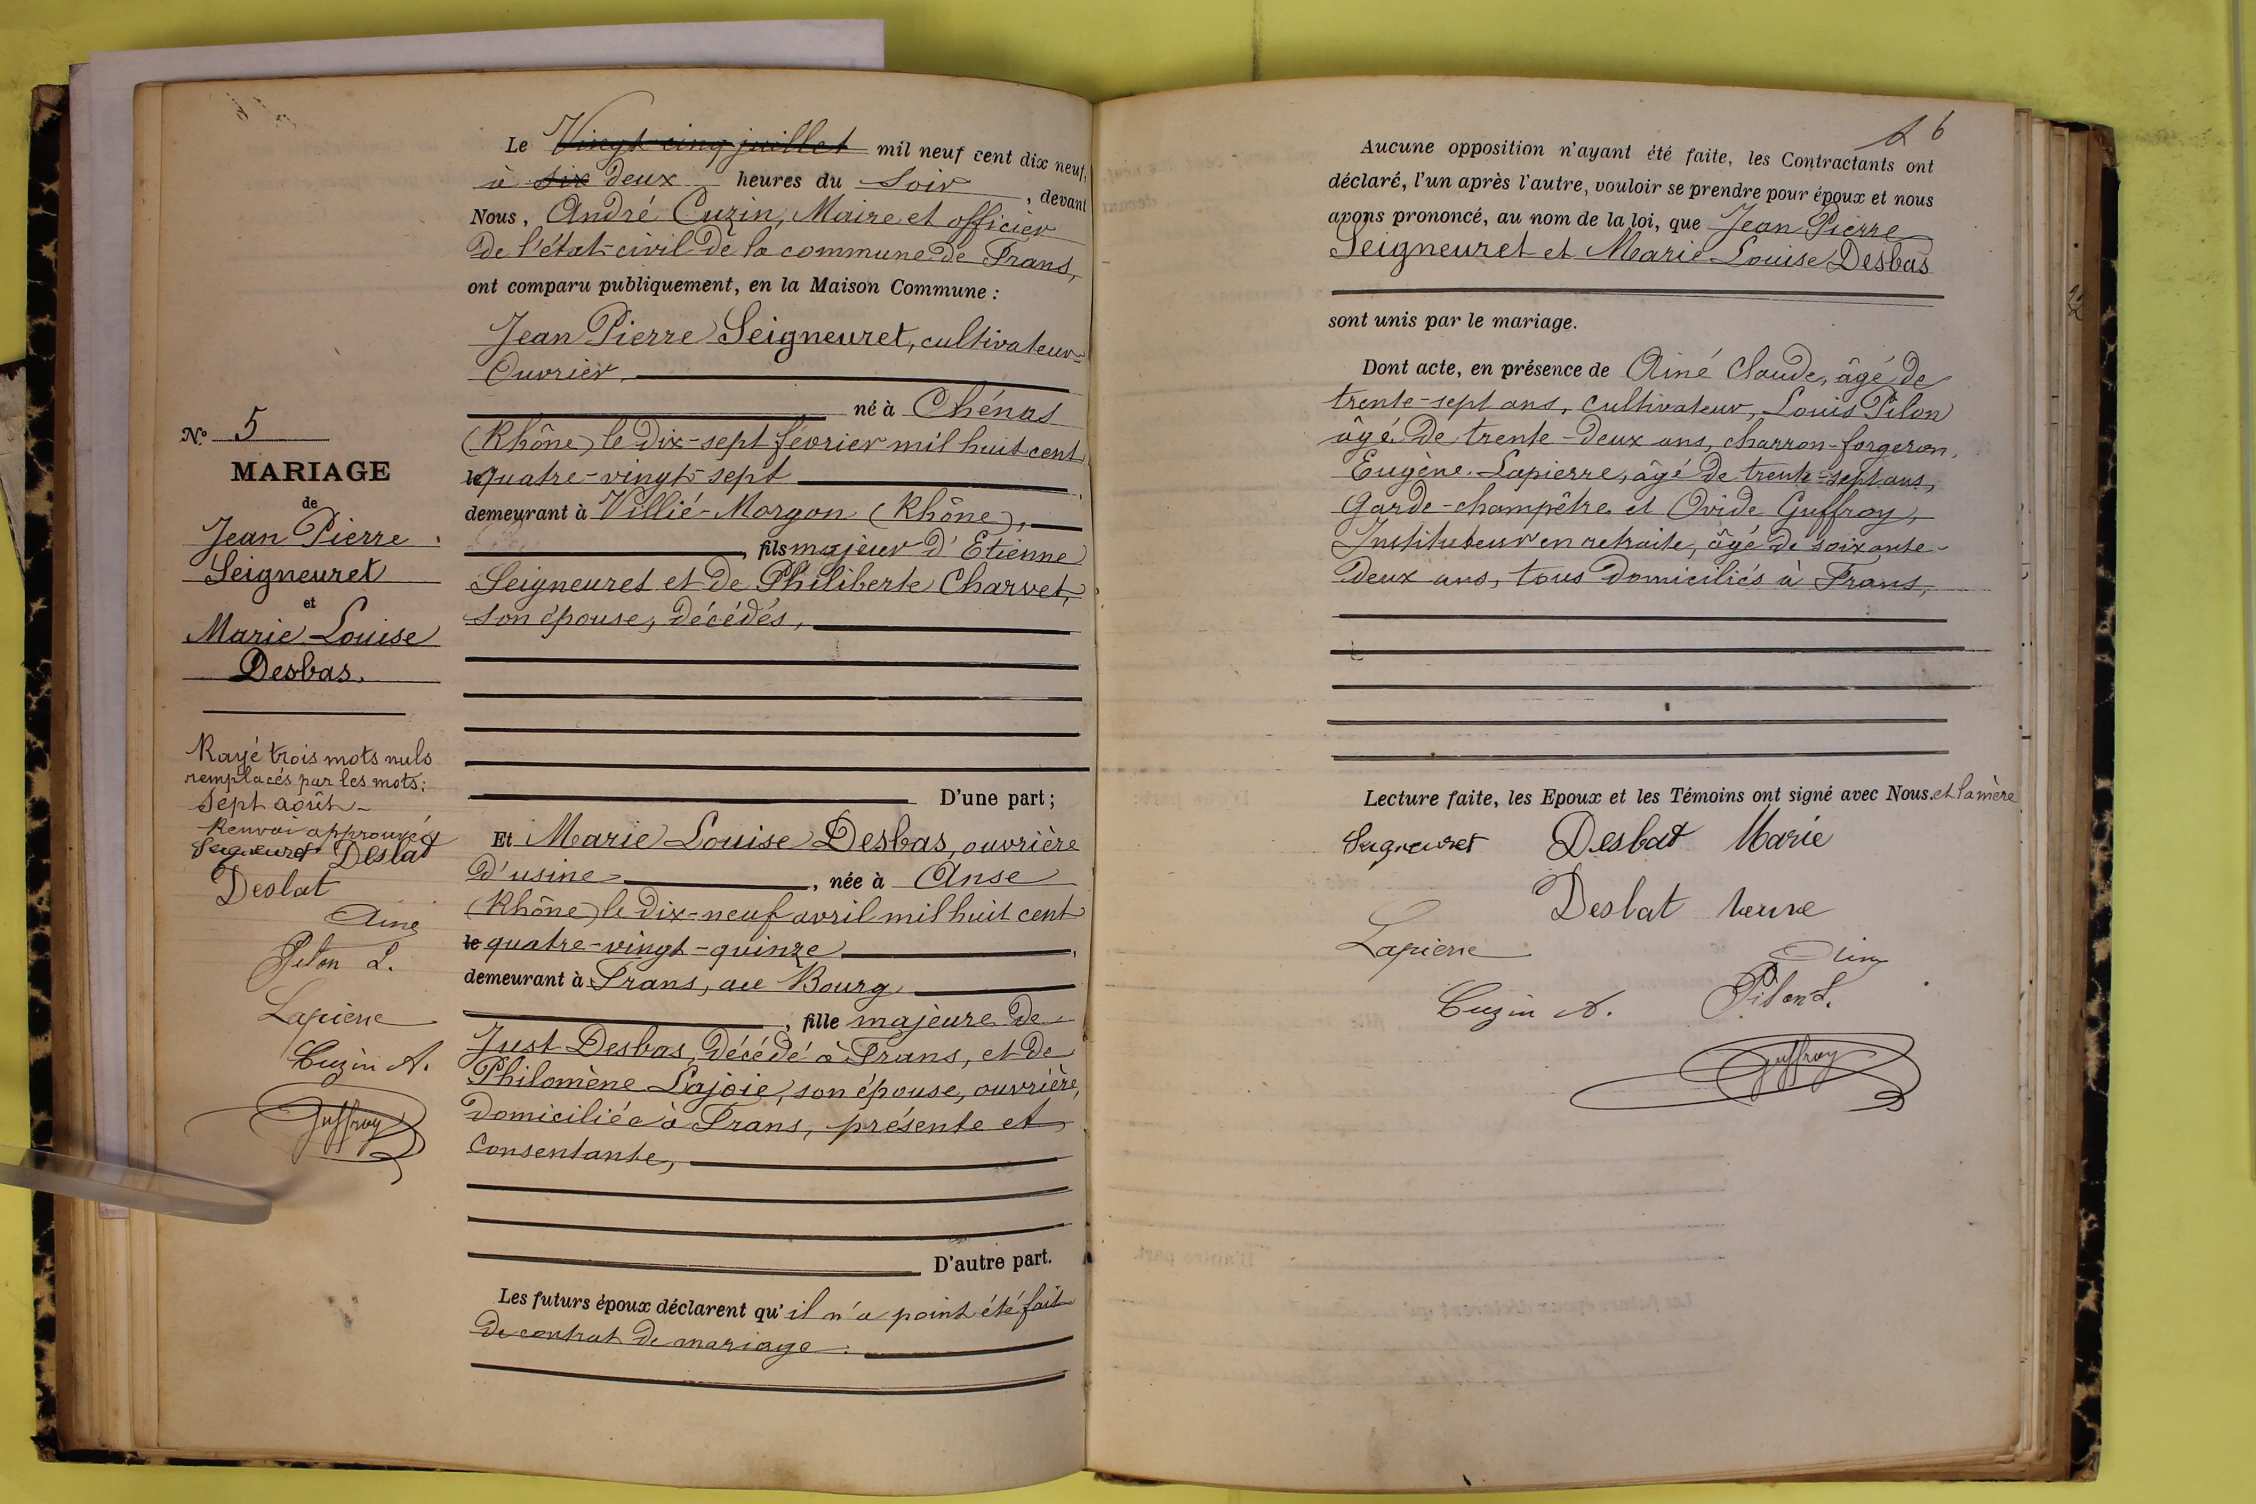 Le Vingt cinq juillet mil neuf cent dix neuf,
à six deux heures du Soir, devant
Nous, André Cuzin, Maire et officier
de l'état-civil de la commune de Frans,
ont comparu publiquement, en la Maison Commune :
Jean Pierre Seigneuret, cultivateur-
Ouvrier,
né à Chénas
(Rhône) le dix-sept février mil huit cent
le quatre-vingt-sept
demeurant à Villié-Morgon (Rhône),
, fils majeur d'Etienne
Seigneuret et de Philiberte Charvet,
son épouse, décédés,
D'une part ;
Et Marie Louise Desbas, ouvrière
d'usine, née à Anse
(Rhône) le dix-neuf avril mil huit cent
le quatre-vingt-quinze,
demeurant à Frans, au Bourg,
, fille majeure de
Just Desbas, décédé à Frans, et de
Philomène Lajoie, son épouse, ouvrière,
domiciliée à Frans, présente et
consentante,
D'autre part.
Les futurs époux déclarent qu'il n'a point été fait
de contrat de mariage.
N° 5
MARIAGE
de
Jean Pierre
Seigneuret
et
Marie Louise
Desbas.
Rayé trois mots nuls
remplacés par les mots :
Sept août -
Renvoi approuvé
Seigneuret Desbat
Desbat
Ainé
Pilon L.
Lapierre
Cuzin A.
Guffroy
6
Aucune opposition n'ayant été faite, les Contractants ont
déclaré, l'un après l'autre, vouloir se prendre pour époux et nous
avons prononcé, au nom de la loi, que Jean Pierre
Seigneuret et Marie Louise Desbas
sont unis par le mariage.
Dont acte, en présence de Ainé Claude, âgé de
trente-sept ans, cultivateur, Louis Pilon
âgé de trente-deux ans, charron-forgeron,
Eugène Lapierre, âgé de trente-sept ans,
Garde-champêtre et Ovide Guffroy,
Instituteur en retraite, âgé de soixante-
deux ans, tous domiciliés à Frans,
Lecture faite, les Epoux et les Témoins ont signé avec Nous. et la mère
Seigneuret Desbat Marie
Desbat veuve
Lapierre Ainé
Cuzin A. Pilon L.
Guffroy